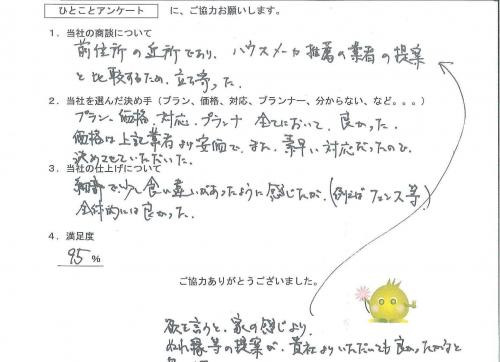 ひとことアンケート に、ご協力お願いします。
1．当社の商談について
前住所の近所であり、ハウスメーカ推薦の業者の提案
と比較するため、立ち寄った。
2．当社を選んだ決め手（プラン、価格、対応、プランナー、分からない、など。。。）
プラン、価格、対応、プランナ 全てにおいて、良かった。
価格は上記業者より安価で、また、素早い対応だったので、
決めさせていただいた。
3．当社の仕上げについて
細部で、少し食い違いがあったように感じたが、(例えばフェンス等)
全体的には良かった。
4．満足度
95 %
ご協力ありがとうございました。
欲を言うと、家の感じより、
ぬれ縁等の提案が、貴社よりいただいても良かったかなと